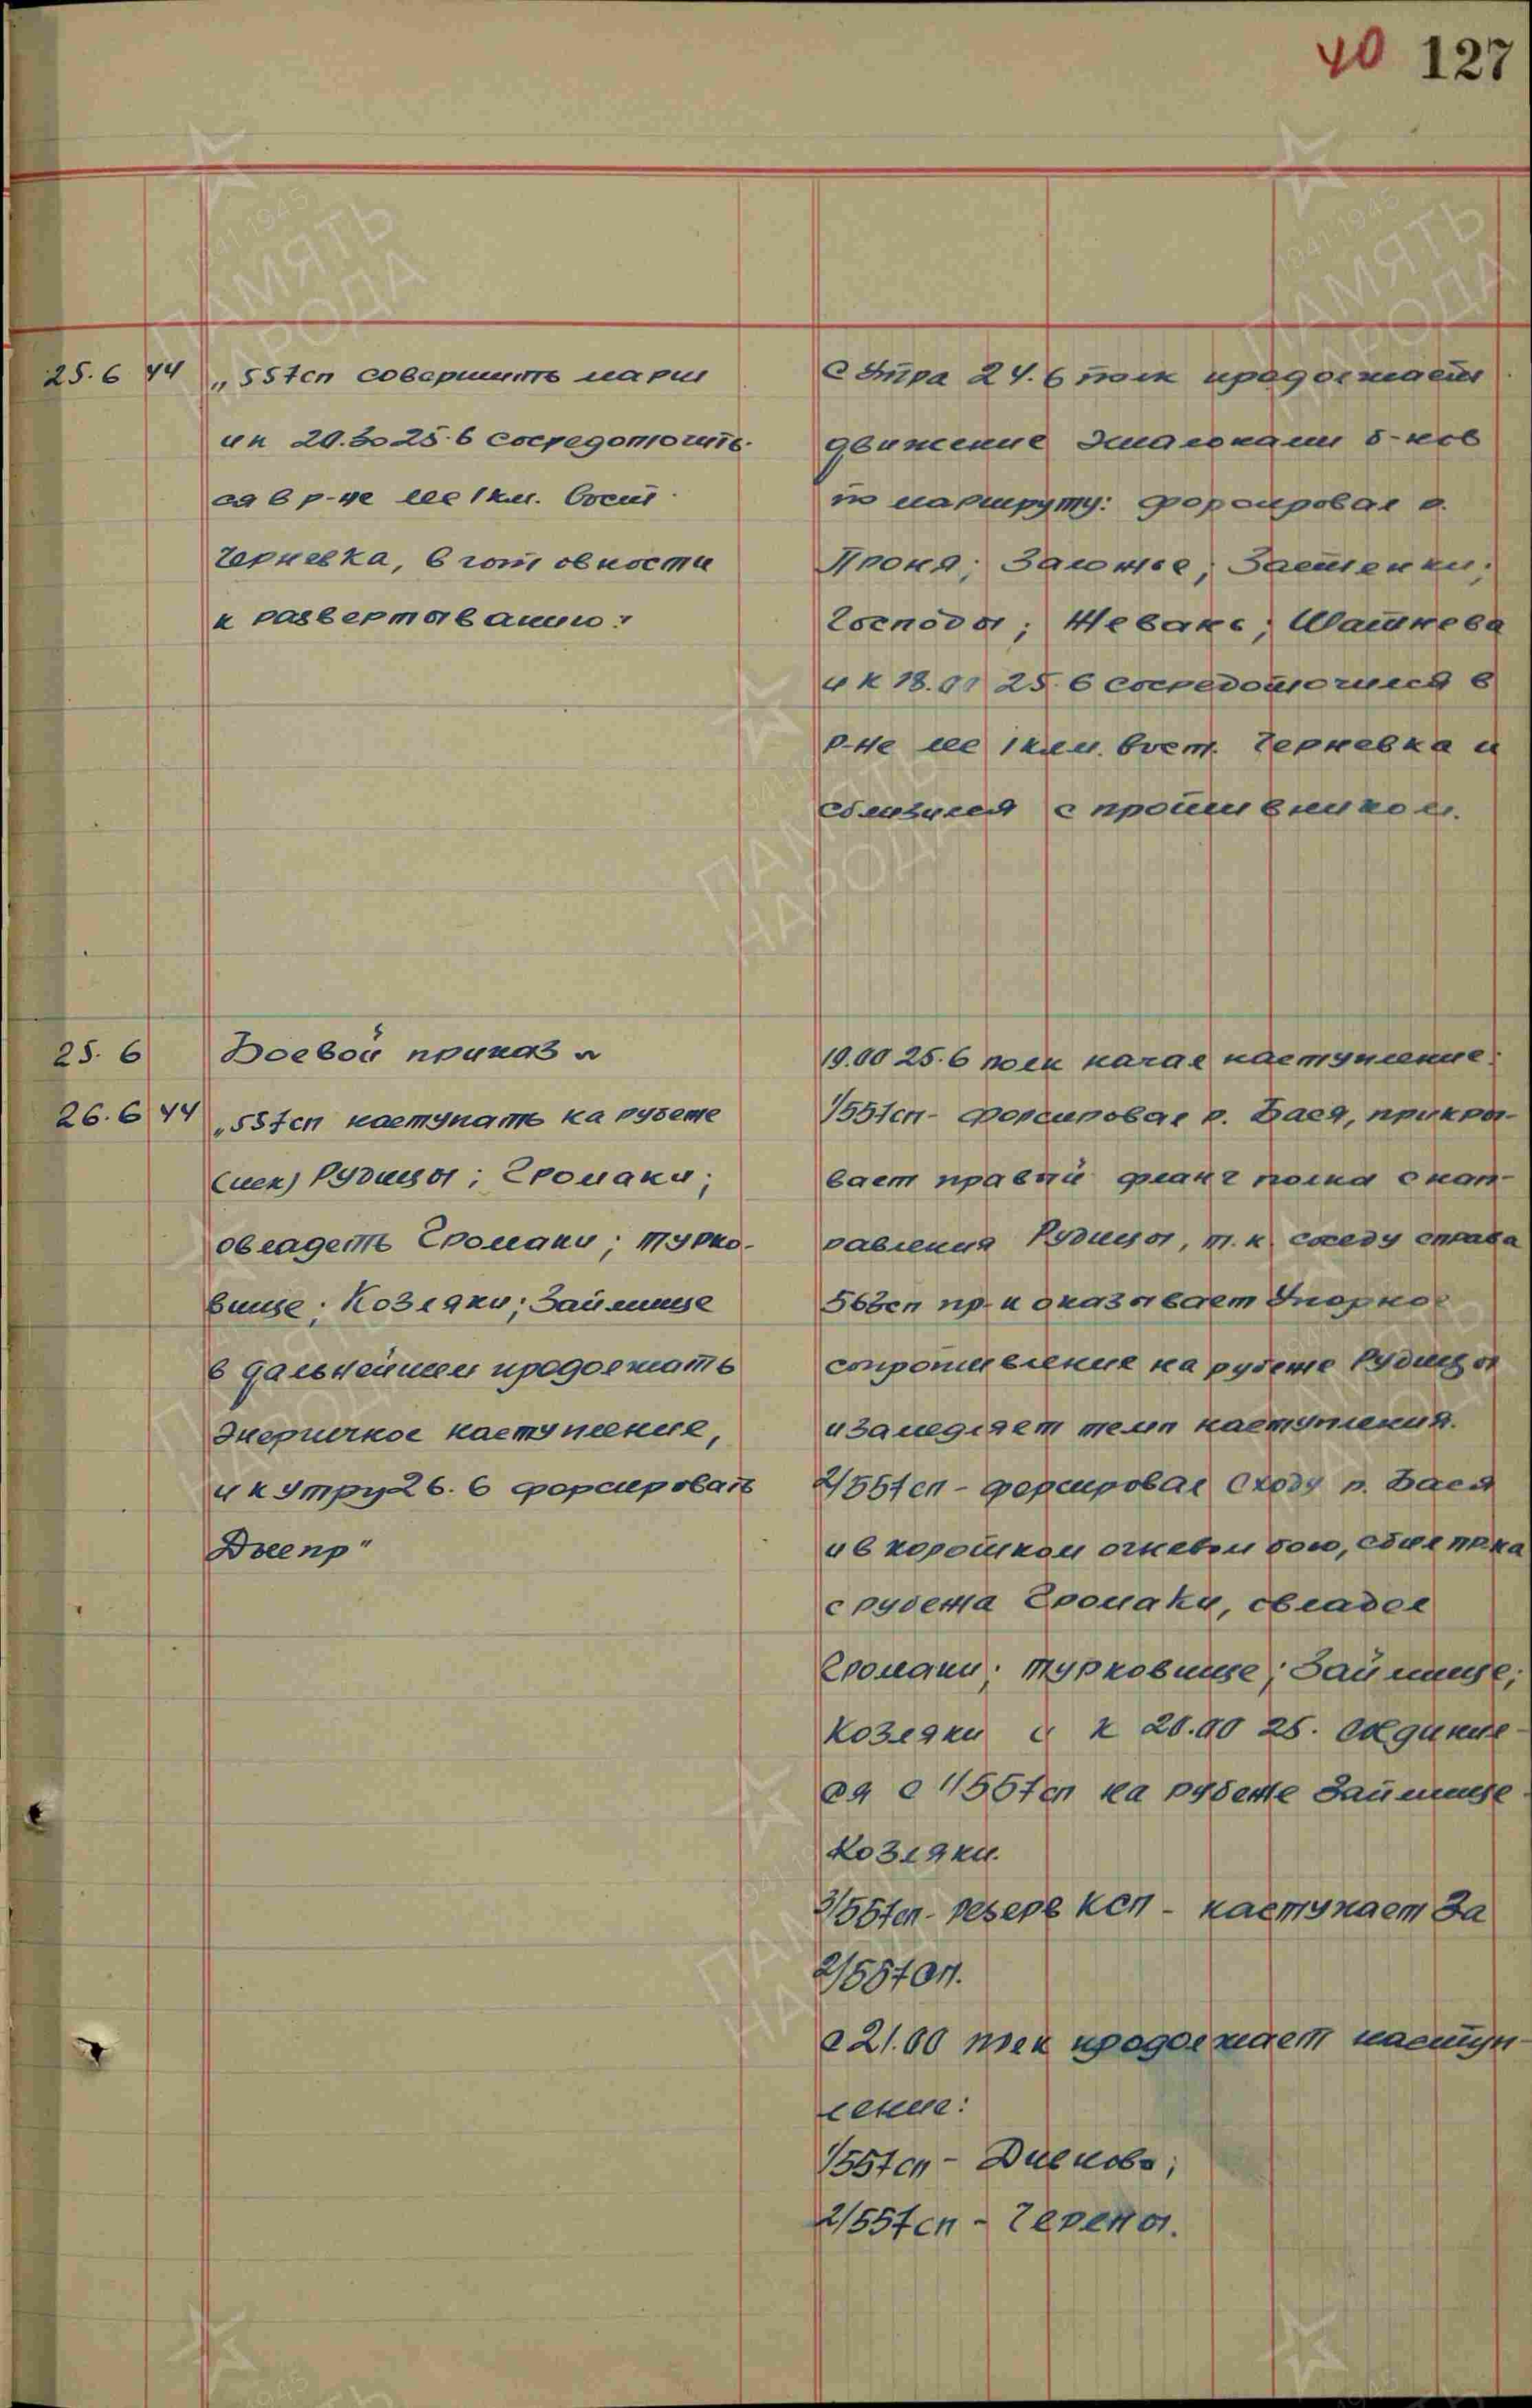 40 127
25.6 44 „557сп совершить марш
и к 20.30 25.6 сосредоточить-
ся в р-не 1 км. вост.
Черневка, в готовности
к развертыванию"
С Утра 24.6 полк продолжает
движение эшалонами б-нов
по маршруту: форсировал р.
Проня; Заложье; Застенки;
Господы; Жевань; Шатнева
и к 18.00 25.6 сосредоточился в
р-не 1 км. вост. Черневка и
сблизился с противником.
25.6 Боевой приказ
26.6 44 „557сп наступать на рубеже
(иск) Рудицы; Громаки;
овладеть Громаки; Турко-
вище; Козляки; Займище
в дальнейшем продолжать
Энергичное наступление,
и к утру 26.6 форсировать
Днепр"
19.00 25.6 полк начал наступление:
1/557сп - форсировал р. Бася, прикры-
вает правый фланг полка с нап-
равления Рудицы, т.к. соседу справа
563сп пр-к оказывает Упорное
сопротивление на рубеже Рудицы
и замедляет темп наступления.
2/557сп - форсировал сходу р. Бася
и в коротком огневом бою, сбил пр-ка
с рубежа Громаки, овладел
Громаки; Турковище; Займище;
Козляки и к 20.00 25. соединил-
ся с 1/557сп на рубеже Займище -
Козляки.
3/557сп - резерв КСП - наступает за
2/557 сп.
с 21.00 полк продолжает наступ-
ление:
1/557сп - Дивново;
2/557сп - Черепы.
1941-1945
ПАМЯТЬ
НАРОДА